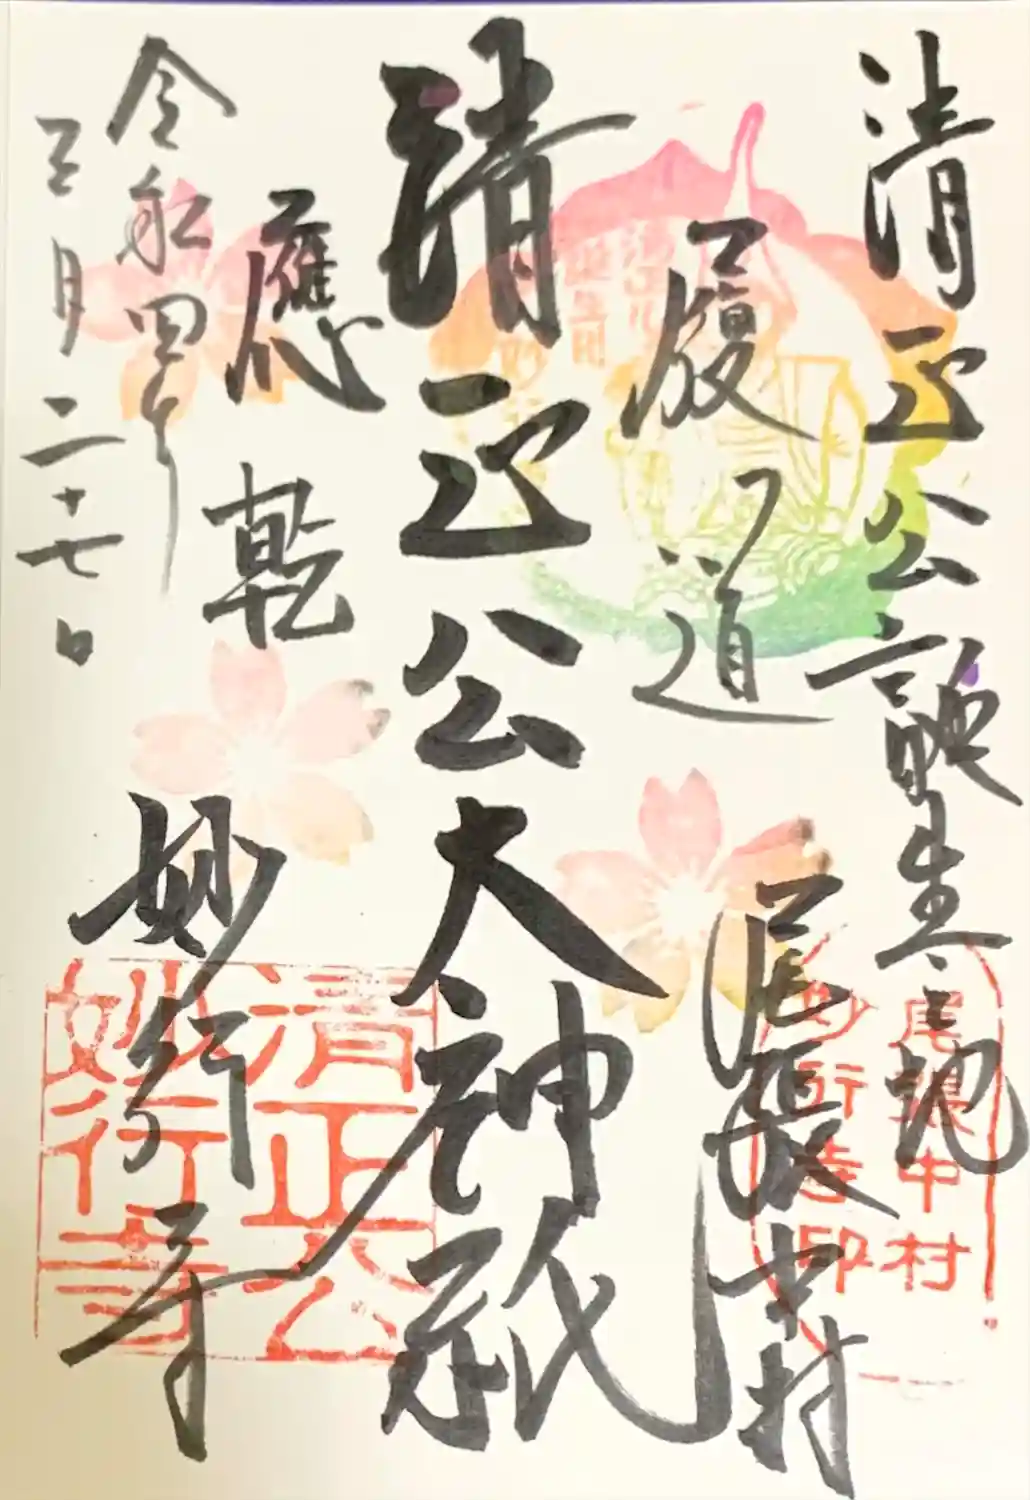 清正公誕生之地
尾張中村
履道
清正公大神祇
應乾
妙行寺
令和四年
三月二十七日
尾張中村
妙行寺印
清正公
妙行寺